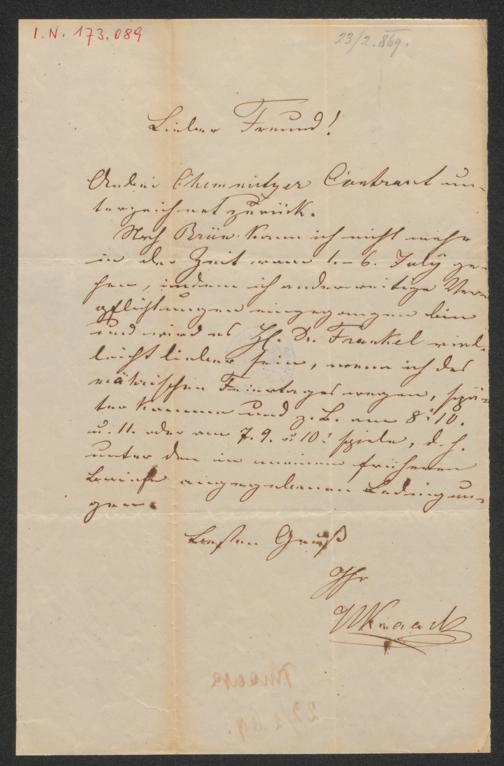 I. N. 173.089
23/2. 869.
Lieber Freund!
Anbei Chemnitzer Contract un-
terzeichnet zurück.
Nach Brün kann ich nicht mehr
in der Zeit vom 1–6. July ge-
hen, indem ich anderweitige Ver-
pflichtungen eingegangen bin
und wird es H. Dr. Frankel viel-
leicht lieber sein, wenn ich des
märischen Feiertages wegen, spä-
ter komme und z. B. am 8. 10.
u. 11. oder am 7. 9. u 10. spiele, d. h.
unter den in meinem früheren
Briefe angegebenen Bedingun-
gen.
Besten Gruß
Ihr
WKnaack